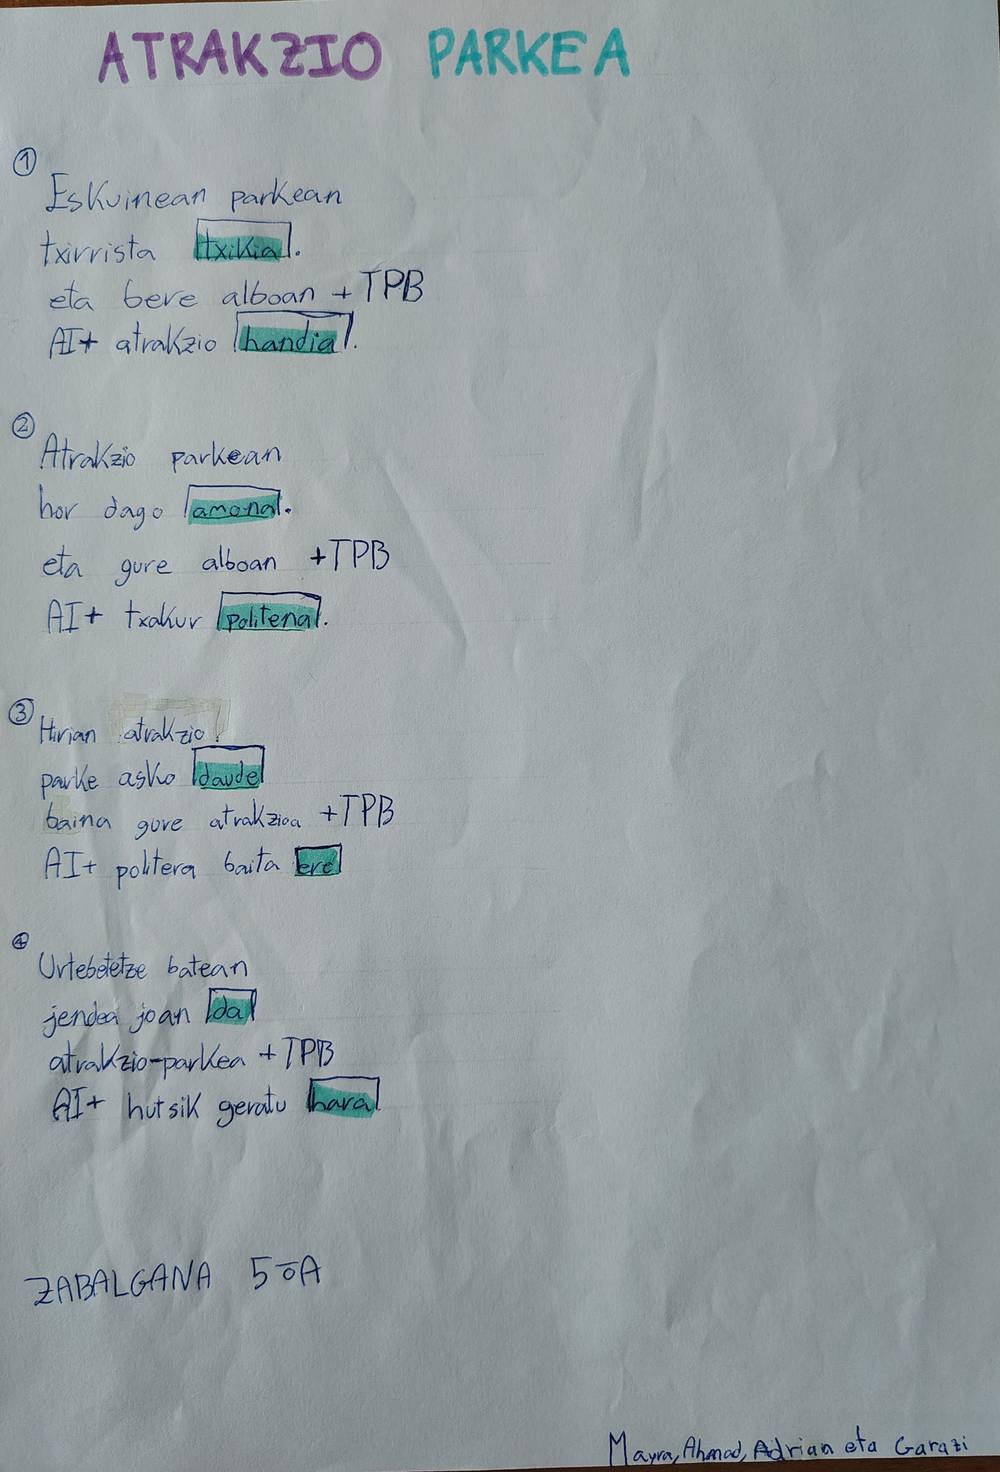 ATRAKZIO PARKEA
①
Eskuinean parkean
txirrista txikia.
eta bere alboan + TPB
AI+ atrakzio handia.
②
Atrakzio parkean
hor dago amona.
eta gure alboan +TPB
AI+ txakur politena.
③
Hirian atrakzio
parke asko daude
baina gure atrakzioa +TPB
AI+ politera baita ere
④
Urtebetetze batean
jendea joan da
atrakzio-parkea +TPB
AI+ hutsik geratu hara
ZABALGANA 5ºA
Mayra, Ahmad, Adrian eta Garazi